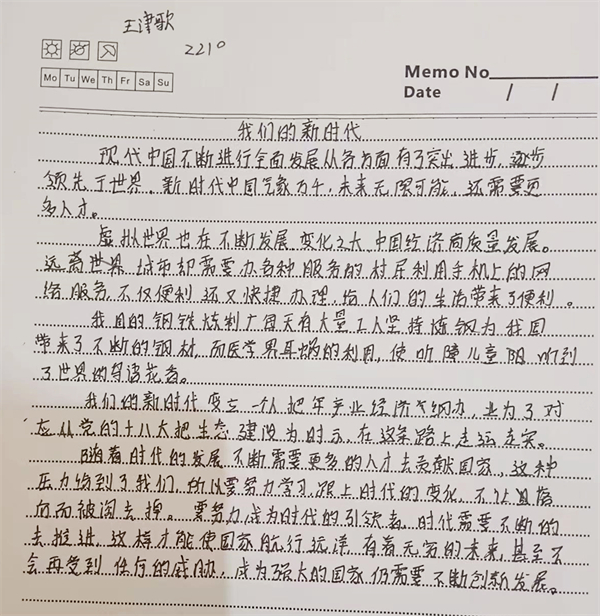 王津歌
221°
Mo Tu We Th Fr Sa Su
Memo No
Date / /
我们的新时代
现代中国不断进行全面发展从各方面有了突出进步,逐步
领先于世界。新时代中国气象万千,未来无限可能,还需要更
多人才。
虚拟世界也在不断发展,变化之大,中国经济高质量发展。
远离世界 城市却需要办各种服务的村民利用手机上的网
络服务,不仅便利还又快捷办理,给人们的生活带来了便利。
我国的钢铁炼制厂每天有大量工人坚持炼钢为我国
带来了不断的钢材,而医学界耳蜗的利用,使听障儿童 听到
了世界的鸟语花香。
我们的新时代 一个人把 产业经济 办,业为了对
应从党的十八大把生态建设为 ,在这条路上走 走实。
随着时代的发展不断需要更多的人才去贡献国家,这种
压力给到了我们,所以要努力学习,跟上时代的变化,不让
而被淘去掉。要努力成为时代的引领者,时代需要不断的
去推进,这样才能使国家航行远洋,有着无穷的未来,甚至不
会再受到任何的威胁,成为强大的国家仍需要不断创新发展。